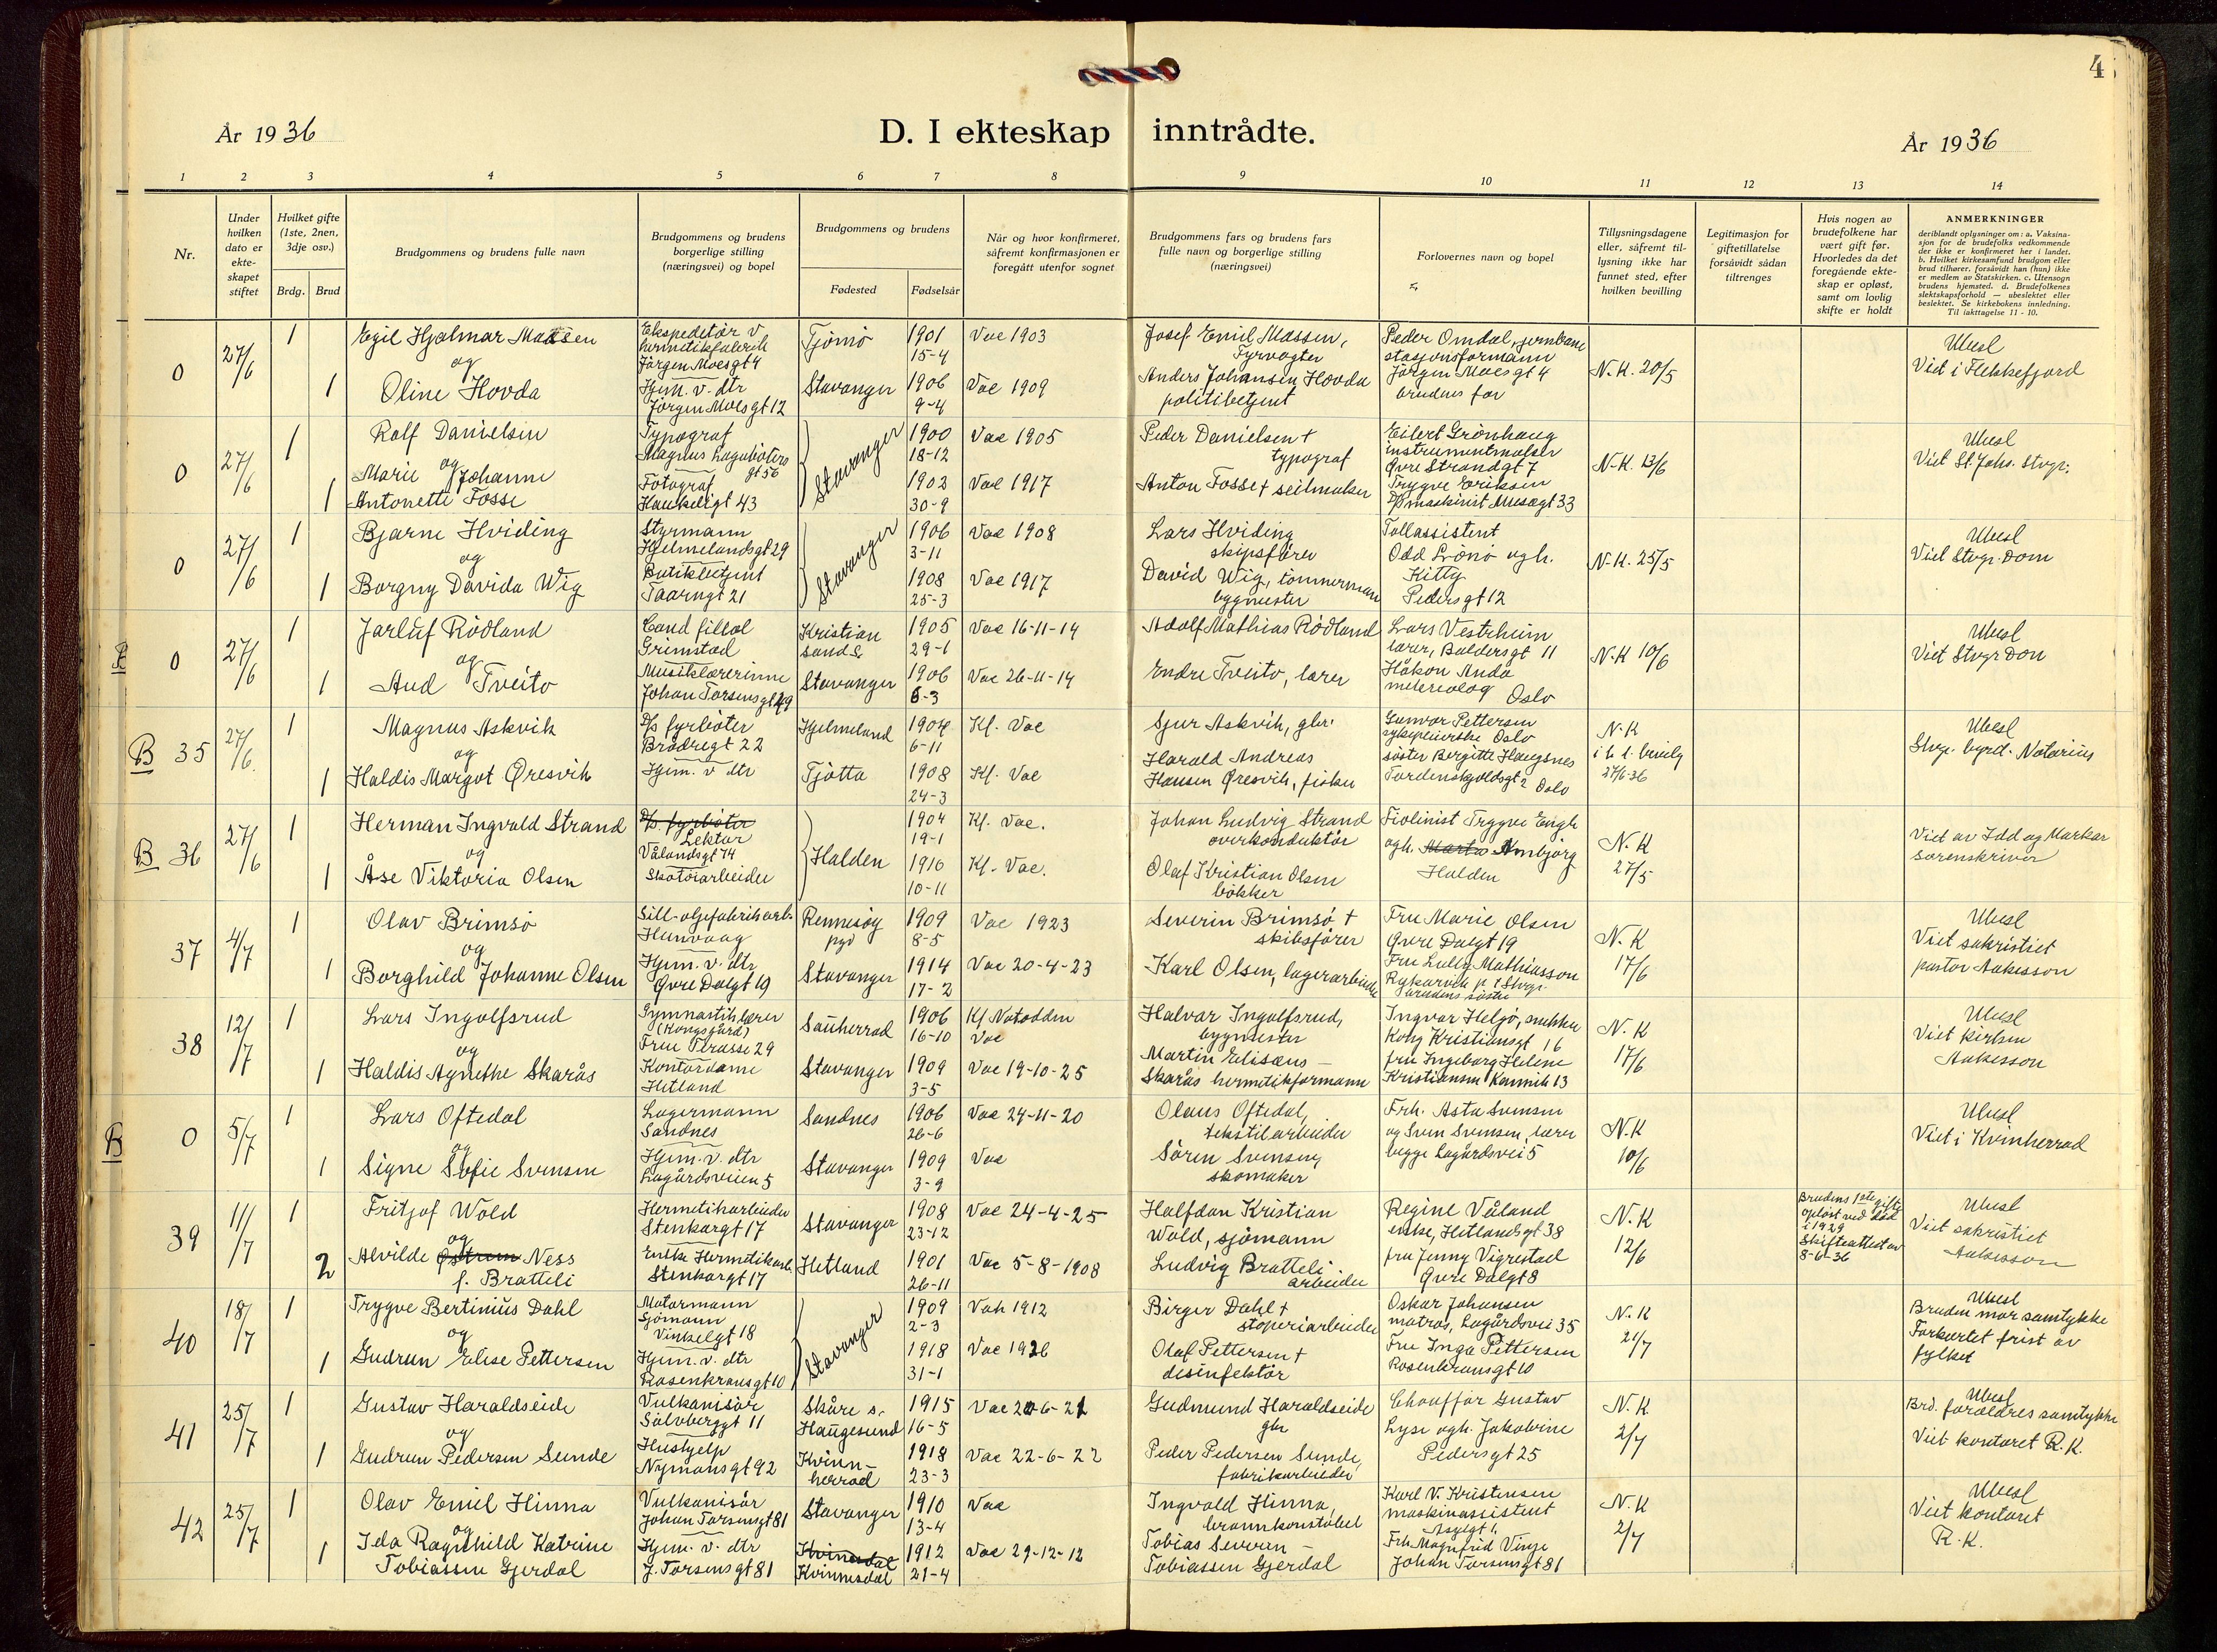 4
År 1936
D. I ekteskap inntrådte.
År 1936
1 2 3 4 5 6 7 8 9 10 11 12 13 14
Nr.
Under hvilken dato er ekteskapet stiftet
Hvilket gifte (1ste, 2nen, 3dje osv.)
Brdg. Brud
Brudgommens og brudens fulle navn
Brudgommens og brudens borgerlige stilling (næringsvei) og bopel
Brudgommens og brudens
Fødested Fødselsår
Når og hvor konfirmeret, såfremt konfirmasjonen er foregått utenfor sognet
Brudgommens fars og brudens fars fulle navn og borgerlige stilling (næringsvei)
Forlovernes navn og bopel
Tillysningsdagene eller, såfremt tillysning ikke har funnet sted, efter hvilken bevilling
Legitimasjon for giftetillatelse forsåvidt sådan tiltrenges
Hvis nogen av brudefolkene har vært gift før. Hvorledes da det foregående ekteskap er opløst, samt om lovlig skifte er holdt
ANMERKNINGER
deriblandt oplysninger om: a. Vaksinasjon for de brudefolks vedkommende der ikke er konfirmeret her i landet. b. Hvilket kirkesamfund brudgom eller brud tilhører, forsåvidt han (hun) ikke er medlem av Statskirken. c. Utensogn brudens hjemsted. d. Brudefolkenes slektskapsforhold — ubeslektet eller beslektet. Se kirkebokens innledning. Til iakttagelse 11 - 10.
0 27/6 1 Egil Hjalmar Madsen
og
1 Oline Hovda
Ekspeditør v.
hermetikfabrik
Jørgen Moesgt 4
Hjem. v. dtr
Jørgen Moesgt 12
Tjømø 1901 15-4 Vac 1903
Stavanger 1906 9-4 Vac 1909
Josef Emil Massen,
Fyrvogter
Anders Johansen Hovda
politibetjent
Peder Omdal, jernbane
stasjonsformann
Jørgen Moesgt 4
brudens far
N.K. 20/5
Ubesl
Viet i Flekkefjord
0 27/6 1 Rolf Danielsen
og
1 Marie Johanne
Antonette Fosse
Typograf
Magnus Lagabøters
gt 56
Fotograf
Haukeligt 43
Stavanger
1900 18-12 Vac 1905
1902 30-9 Vac 1917
Peder Danielsen †
typograf
Anton Fosse † seilmaker
Eilert Grönhaug
instrumentmaker
Øvre Strandgt 7
Trygve Eriksen
D/s maskinist Musegt 33
N.K. 13/6
Ubesl
Viet St. Joh. Stvgr.
0 27/6 1 Bjarne Hviding
og
1 Borgny Davida Wig
Styrmann
Hjelmelandsgt 29
Butikbetjent
Taarngt 21
Stavanger
1906 3-11 Vac 1908
1908 25-3 Vac 1917
Lars Hviding
skipsfører
David Wig, tömmerman
bygmester
Tollassistent
Odd Lönö ogh.
Kitty
Pedersgt 12
N.K. 25/5
Ubesl
Viet Stvgr. Dom
0 27/6 1 Jarluf Rödland
og
1 Aud Tveito
Cand fillol
Grimstad
Musiklærerinne
Johan Torsensgt 49
Kristian
sand S. 1905 29-1 Vac 16-11-14
Stavanger 1906 6-3 Vac 26-11-14
Adolf Mathias Rödland
Endre Tveito, lærer
Lars Vestrheim
lærer, Baldersgt 11
Håkon Anda
metereolog Oslo
N.K 10/6
Ubesl
Viet Stvgr Dom
B 35 27/6 1 Magnus Askvik
og
1 Haldis Margot Øresvik
D/s fyrböter
Brödregt 22
Hjem. v dtr
Hjelmeland 1904 6-11 Kf. Vac
Tjötta 1908 24-3 Kf. Vac
Sjur Askvik, gbr.
Harald Andreas
Hansen Øresvik, fisker
Gunvor Pettersen
sykepleierske Oslo
söster Bergitte Haugsnes
Tordenskjoldsgt 2 Oslo
N.K
27/6-36
Ubesl
Stvgr. byrd. Notarius
B 36 27/6 1 Herman Ingvald Strand
og
1 Åse Viktoria Olsen
D/s. fyrböter
Lektor
Vålandsgt 74
Skotöiarbeider
Halden
1904 19-1 Kf. Vac.
1910 10-11 Kf. Vac.
Johan Ludvig Strand
overkonduktör
Olaf Kristian Olsen
bökker
Fiolinist Trygve Engh
ogh. Marta Annbjörg
Halden
N.K
27/5
Viet av Idd og Markar
sorenskriver
37 4/7 1 Olav Brimsö
og
1 Borghild Johanne Olsen
Sill-oljefabrikarb.
Hunvaag
Hjem. v. dtr
Øvre Dalgt 19
Rennesöy
pgd 1909 8-5 Vac 1923
Stavanger 1914 17-2 Vac 20-4-23
Severin Brimsö †
skibsförer
Karl Olsen, lagerarbeider
Fru Marie Olsen
Øvre Dalgt 19
Fru Lully Mathiasson
brudens söster
N.K
17/6
Ubesl
Viet sakristiet
pastor Aakesson
38 12/7 1 Lars Ingolfsrud
og
1 Haldis Agnethe Skarås
Gymnastiklærer
(Kongsgård)
Frue Terasse 29
Kontordame
Hetland
Sauherrad 1906 16-10 Kf Notodden
Vac
Stavanger 1909 3-5 Vac 19-10-25
Halvar Ingolfsrud,
bygmester
Martin Elisæus –
Skarås hermetikformann
Ingvar Heljö, snekker
Kong Kristiansgt 16
fru Ingeborg Helene
Kristiansen Kannik 13
N.K
17/6
Ubesl
Viet kirken
Aakesson
B 0 5/7 1 Lars Oftedal
og
1 Signe Sofie Svensen
Lagermann
Sandnes
Hjem. v. dtr
Lagårdsveien 5
Sandnes 1906 26-6 Vac 24-11-20
Stavanger 1909 3-9 Vac
Olaus Oftedal,
tekstilarbeider
Sören Svensen,
skomaker
Frk. Asta Svensen
og Sven Svensen, lærer
begge Lagårdsvei 5
N.K
10/6
Ubesl
Viet i Kvinherrad
39 11/7 1 Fritjof Wold
og
2 Alvilde Østrem Ness
f. Bratteli
Hermetikarbeider
Stenkargt 17
Enke Hermetikarb.
Stenkargt 17
Stavanger 1908 23-12 Vac 24-4-25
Hetland 1901 26-11 Vac 5-8-1908
Halfdan Kristian
Wold, sjömann
Ludvig Bratteli
arbeider
Regine Våland
enke, Hetlandsgt 38
fru Jenny Vigrestad
Øvre Dalgt 8
N.K
12/6
Brudens 1ste gifte
oplöst ved död
i 1929
Skifteattest av
8-6-36
Ubesl
Viet sakristiet
Aakesson
40 18/7 1 Trygve Bertinius Dahl
og
1 Gudrun Elise Pettersen
Motormann
Sjömann
Vinkelgt 18
Hjem. v. dtr
Rosenkransgt 10
Stavanger
1909 2-3 Vak 1912
1918 31-1 Vac 1926
Birger Dahl †
stoperiarbeider
Olaf Pettersen †
desinfektör
Oskar Johansen
matros, Lagårdsvei 35
Fru Inga Pettersen
Rosenkransgt 10
N.K
21/7
Ubesl
Bruden mor samtykke
Forkortet frist av
fylket
41 25/7 1 Gustav Haraldseide
og
1 Gudrun Pedersen Sunde
Vulkanisör
Sölvberggt 11
Hushjelp
Nymansgt 92
Skåre s.
Haugesund 1915 16-5 Vac 20-6-21
Kvinn-
herrad 1918 23-3 Vac 22-6-22
Gudmund Haraldseide
gbr
Peder Pedersen Sunde,
fabrikarbeider
Chouffør Gustav
Lyse ogh. Jakobine
Pedersgt 25
N.K
2/7
Ubesl
Brd. foreldres samtykke
Viet kontoret R.K.
42 25/7 1 Olav Emil Hinna
og
1 Ida Ragnhild Katrine
Tobiassen Gjerdal
Vulkanisör
Johan Torsensgt 81
Hjem. v. dtr
J. Torsensgt 81
Stavanger 1910 13-4 Vac
Kvinesdal
Kvinnesdal 1912 21-4 Vac 29-12-12
Ingvald Hinna,
brannkonstabel
Tobias Severin –
Tobiassen Gjerdal
Karl V. Kristensen
maskinassistent
Asylgt 1
Frk Magnfrid Vinje
Johan Torsensgt 81
N.K
2/7
Ubesl
Viet kontoret
R.K.